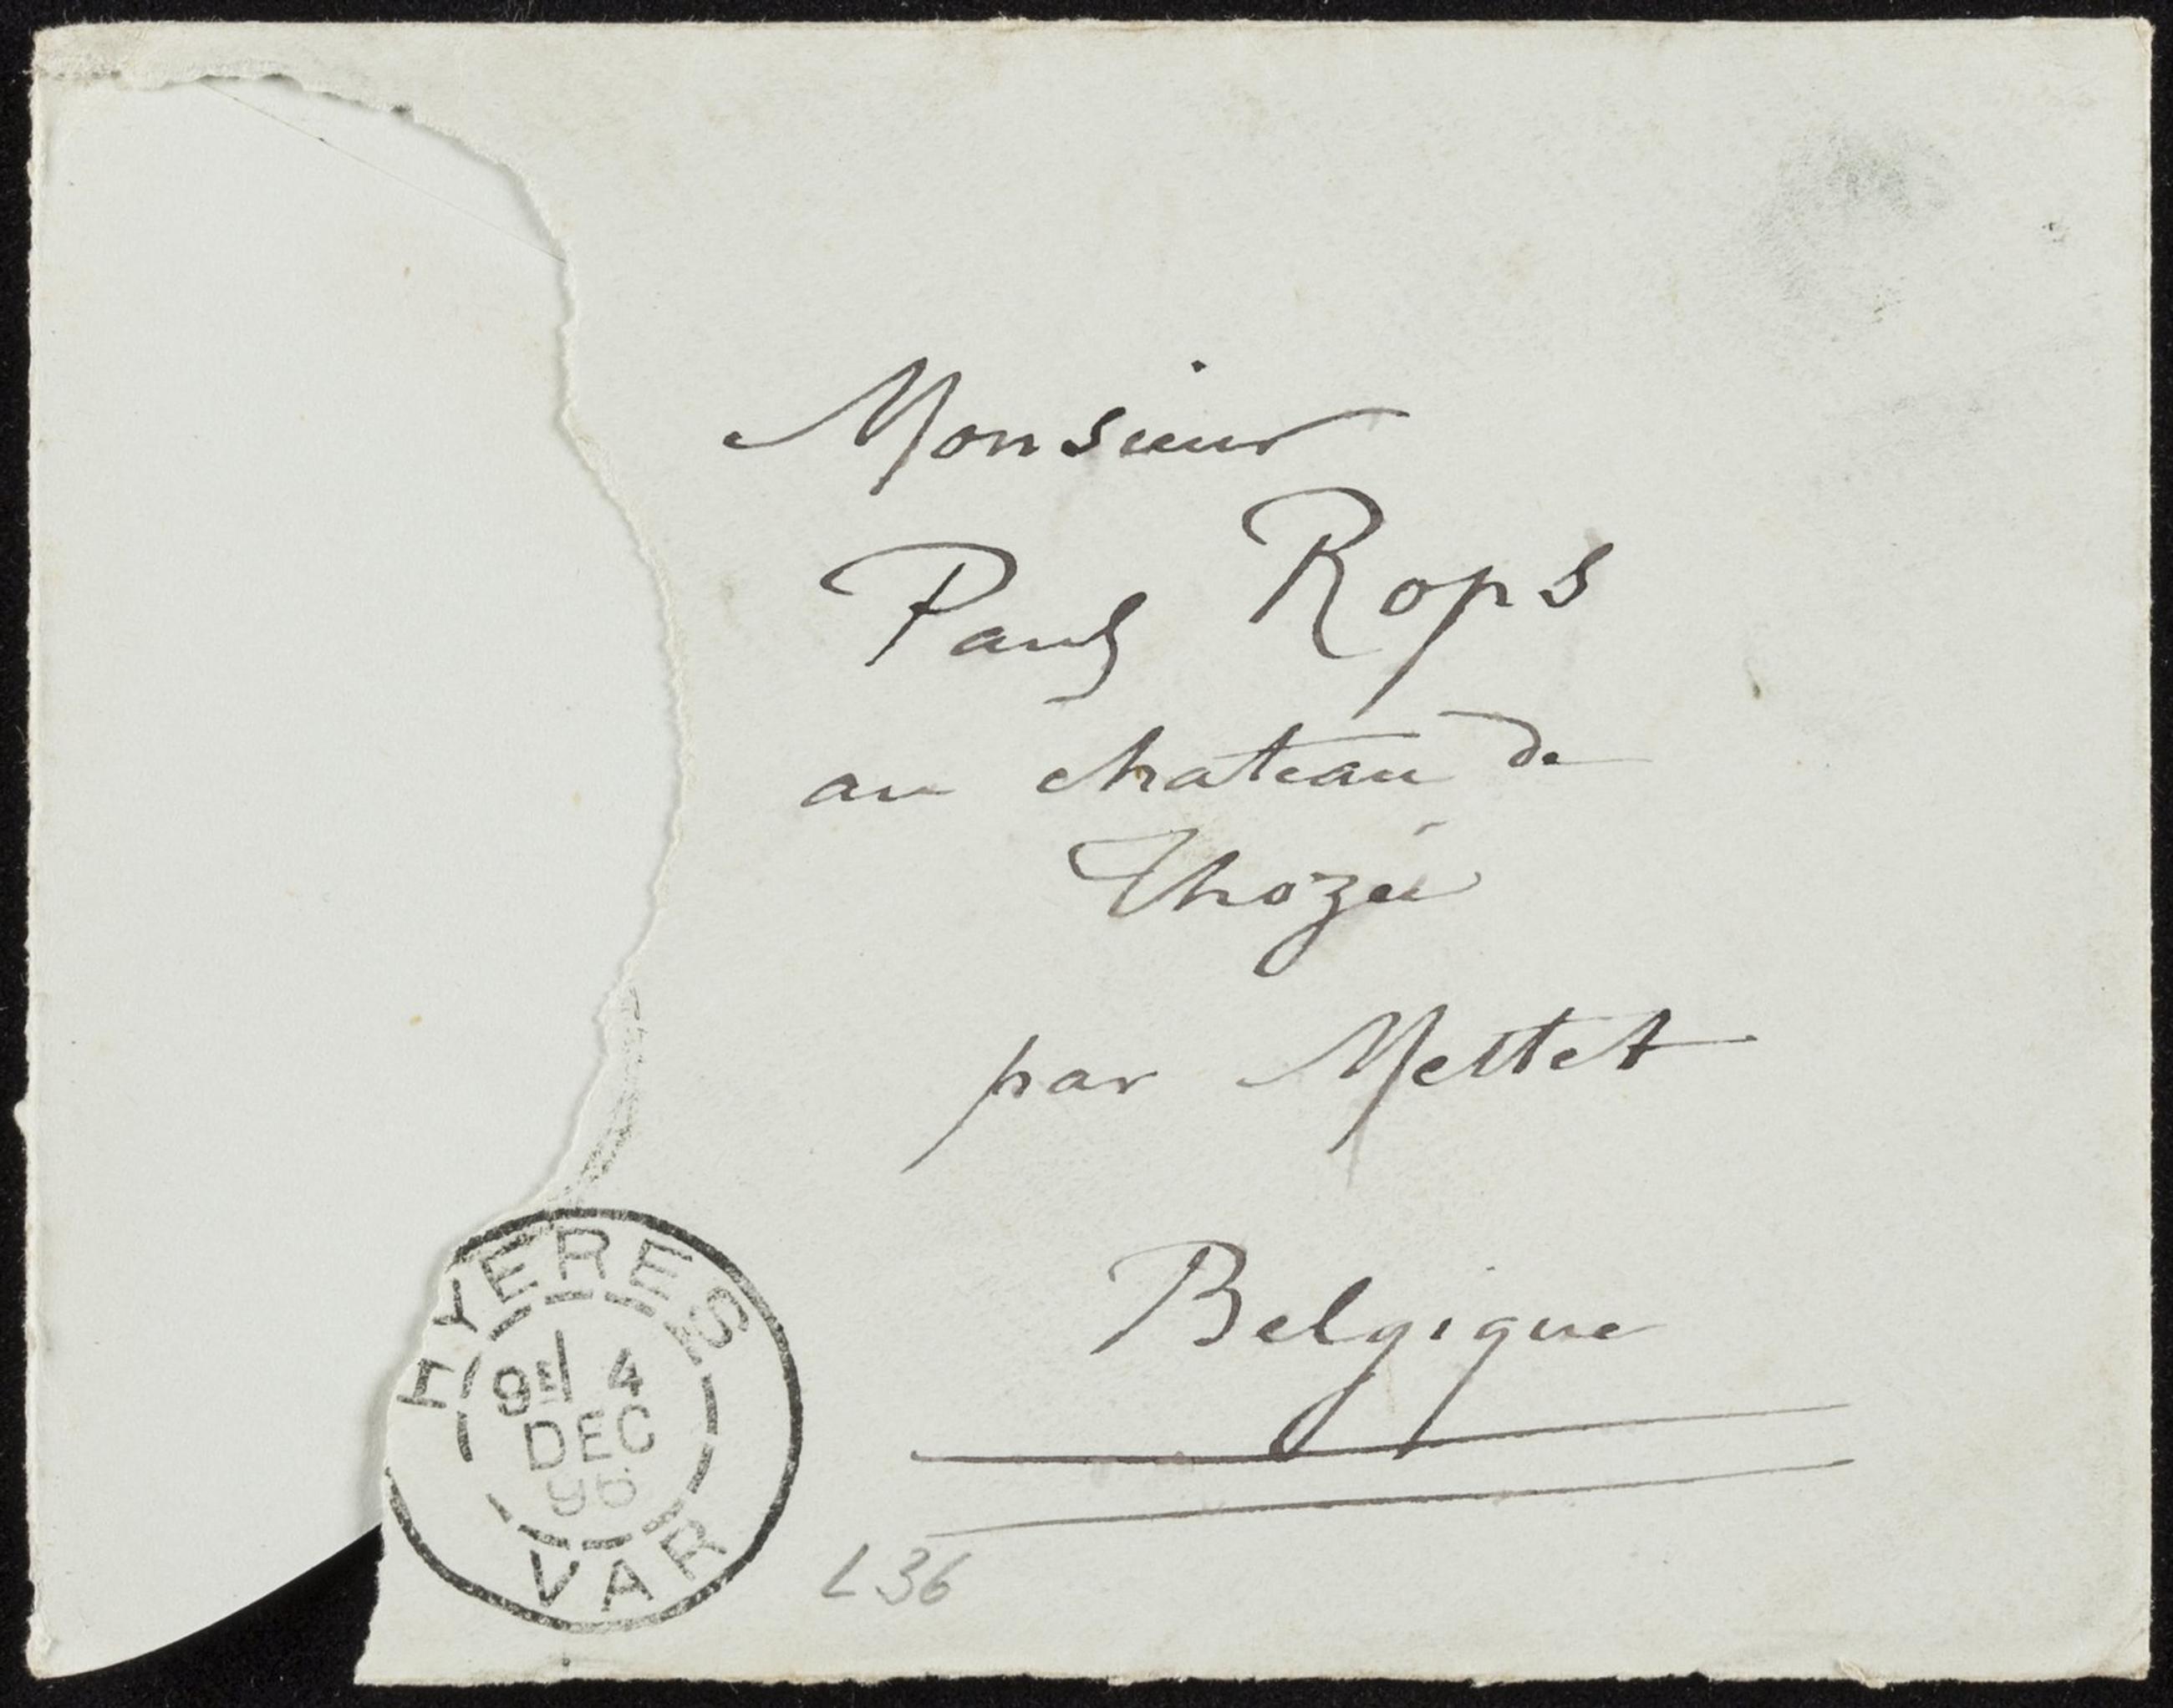 Monsieur
Paul Rops
au chateau de
Thozée
par Mettet
Belgique
HYERES
9E 4
DEC
96
VAR
L 36